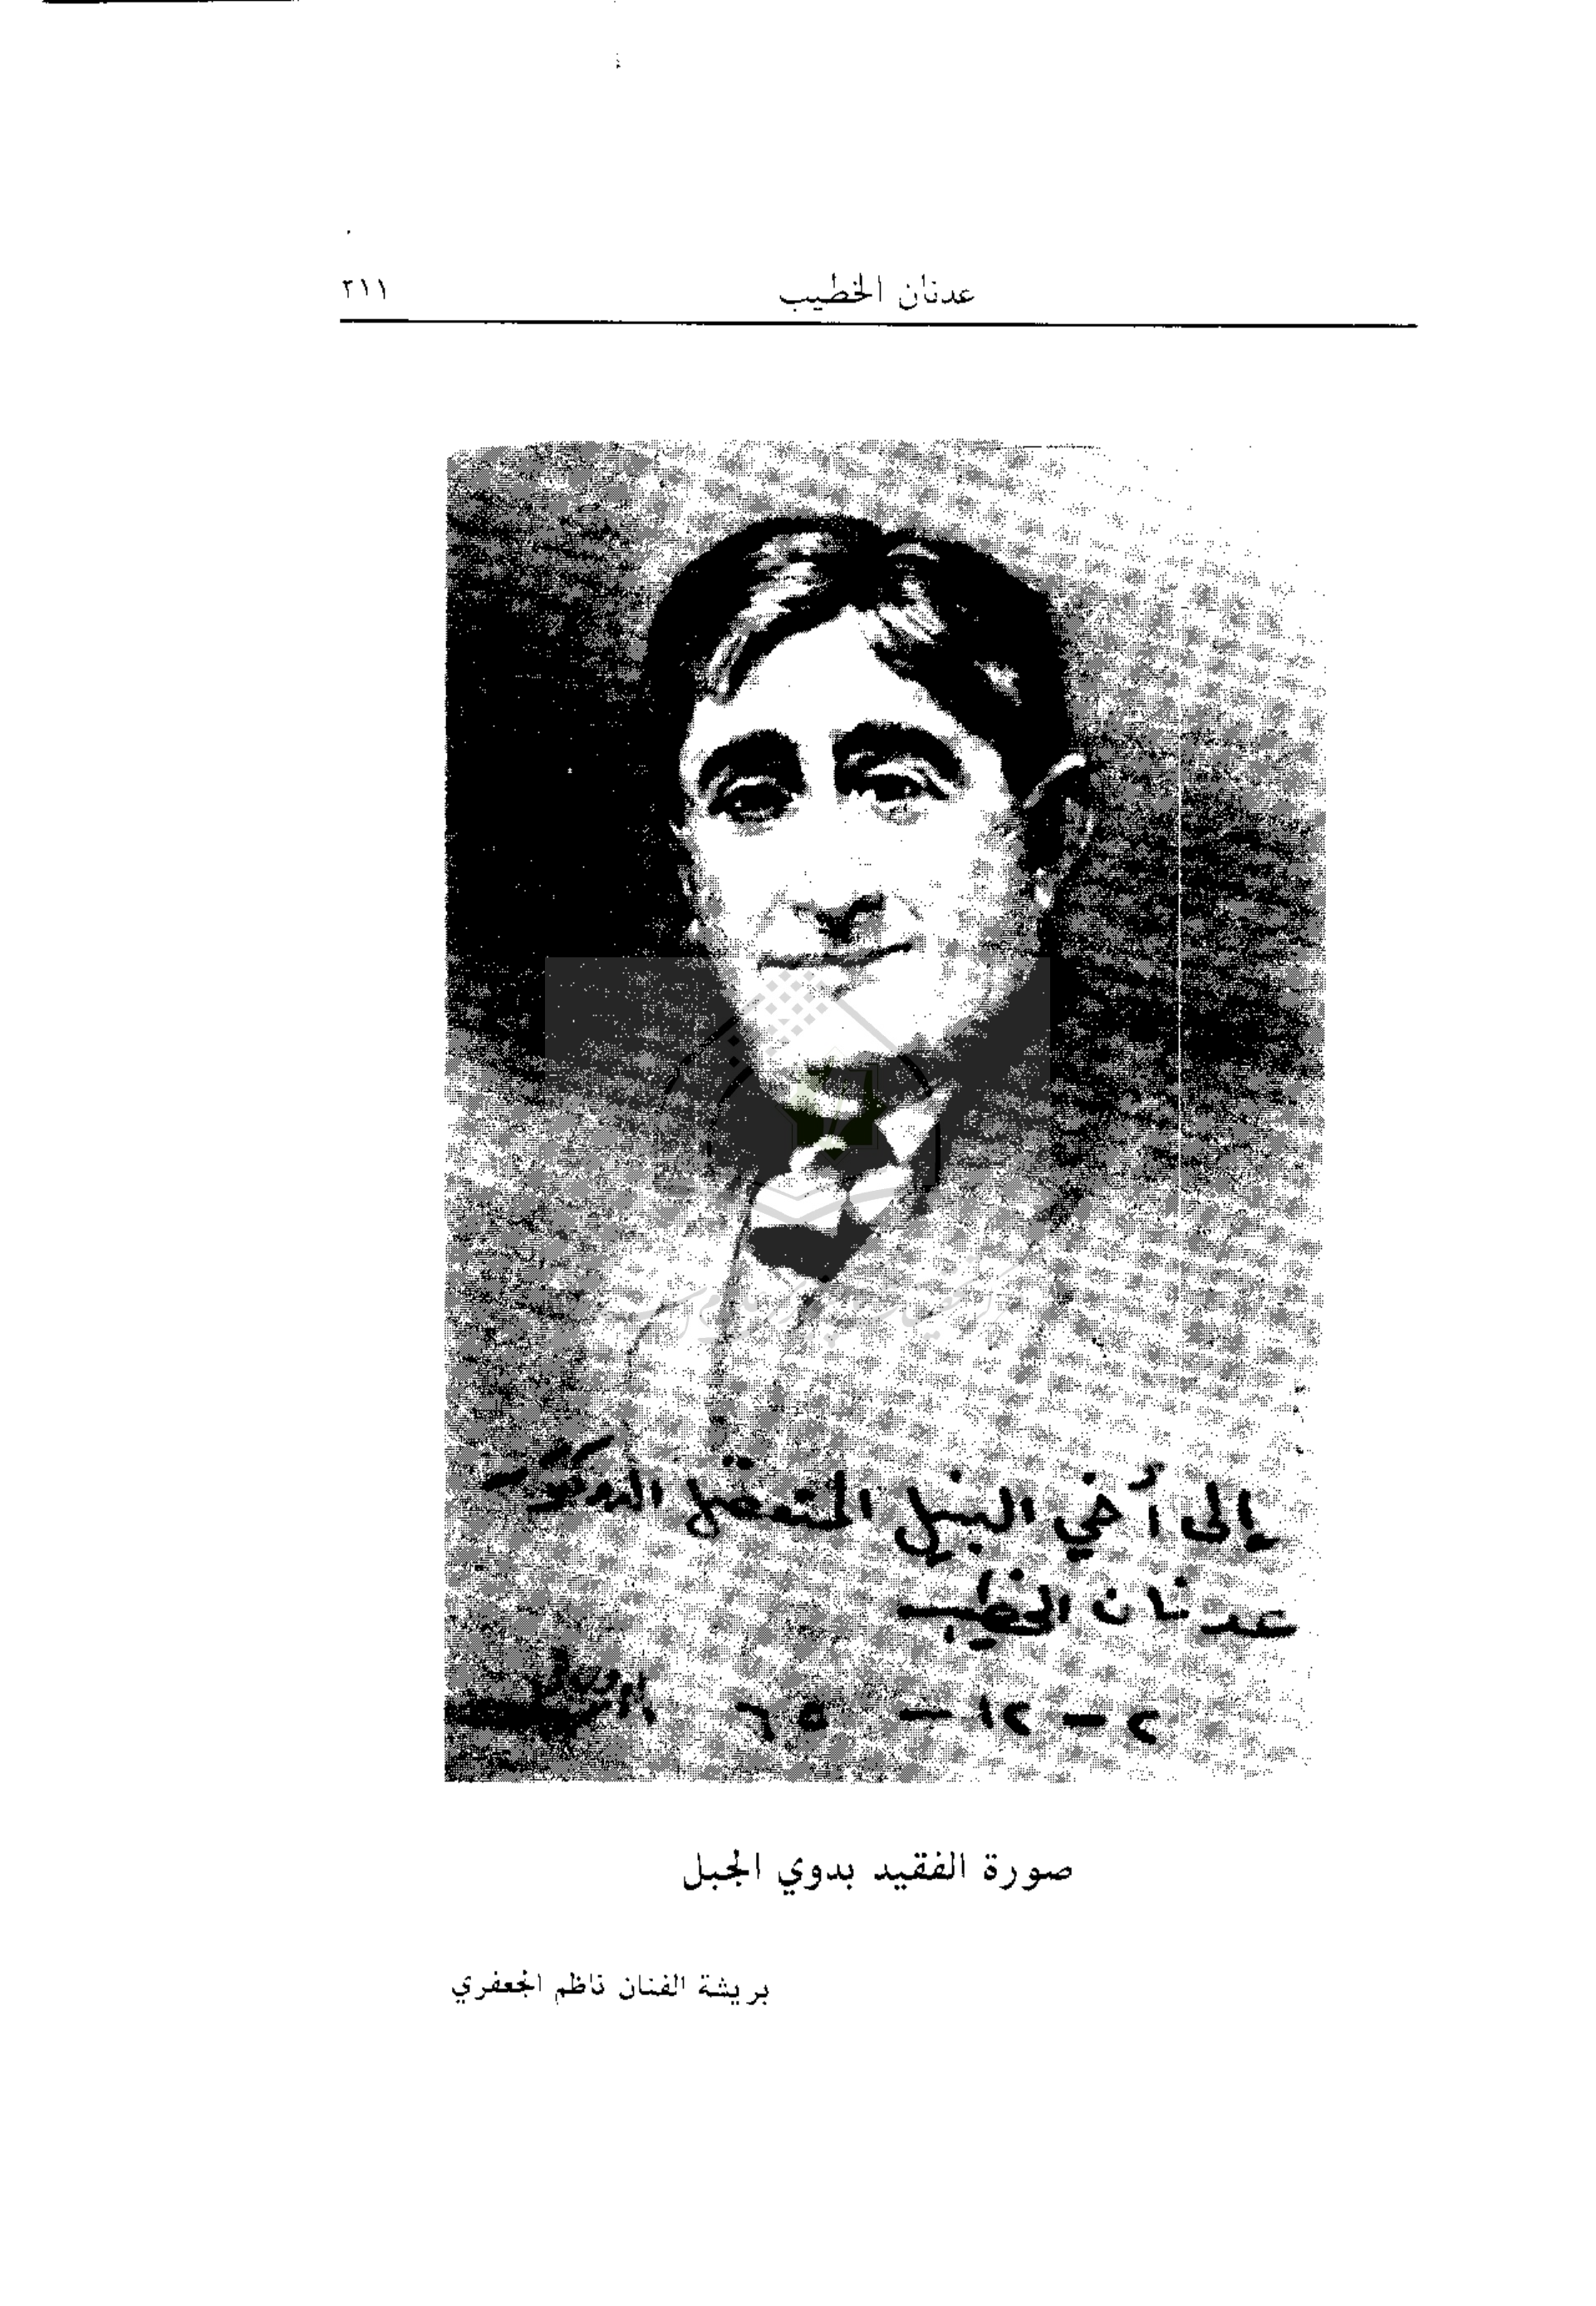 عدنان الخطيب
٢١١
إلى أخي النبيل المتفضل الدكتور
عدنان الخطيب
٢ - ١٢ - ٦٥
صورة الفقيد بدوي الجبل
بريشة الفنان ناظم الجعفري